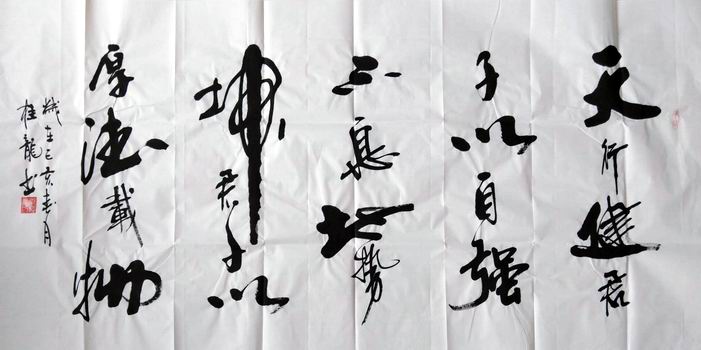 天行健君
子以自强
不息地势
坤君子以
厚德载物
岁在己亥春月
桂龙书